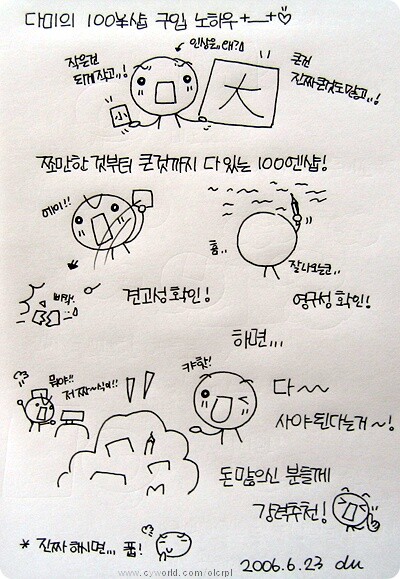 다미의 100¥샵 구입 노하우 +_+♡
인상은, 왜?
작은건
되게 작고,,!
큰건
진짜 큰것도 많고,,!
小
大
쪼만한 것부터 큰것까지 다 있는 100엔샵!
에이!!
흠..
잘나오는군..
빠각
견고성 확인!
영구성 확인!
하면...
뭐야!!
저 짜~식이!!
캬핫!
다~~
사야된다는거~!
돈 많으신 분들께
강력추천!
* 진짜 하시면... 풉!
2006.6.23 du
www.cyworld.com/olcrpl